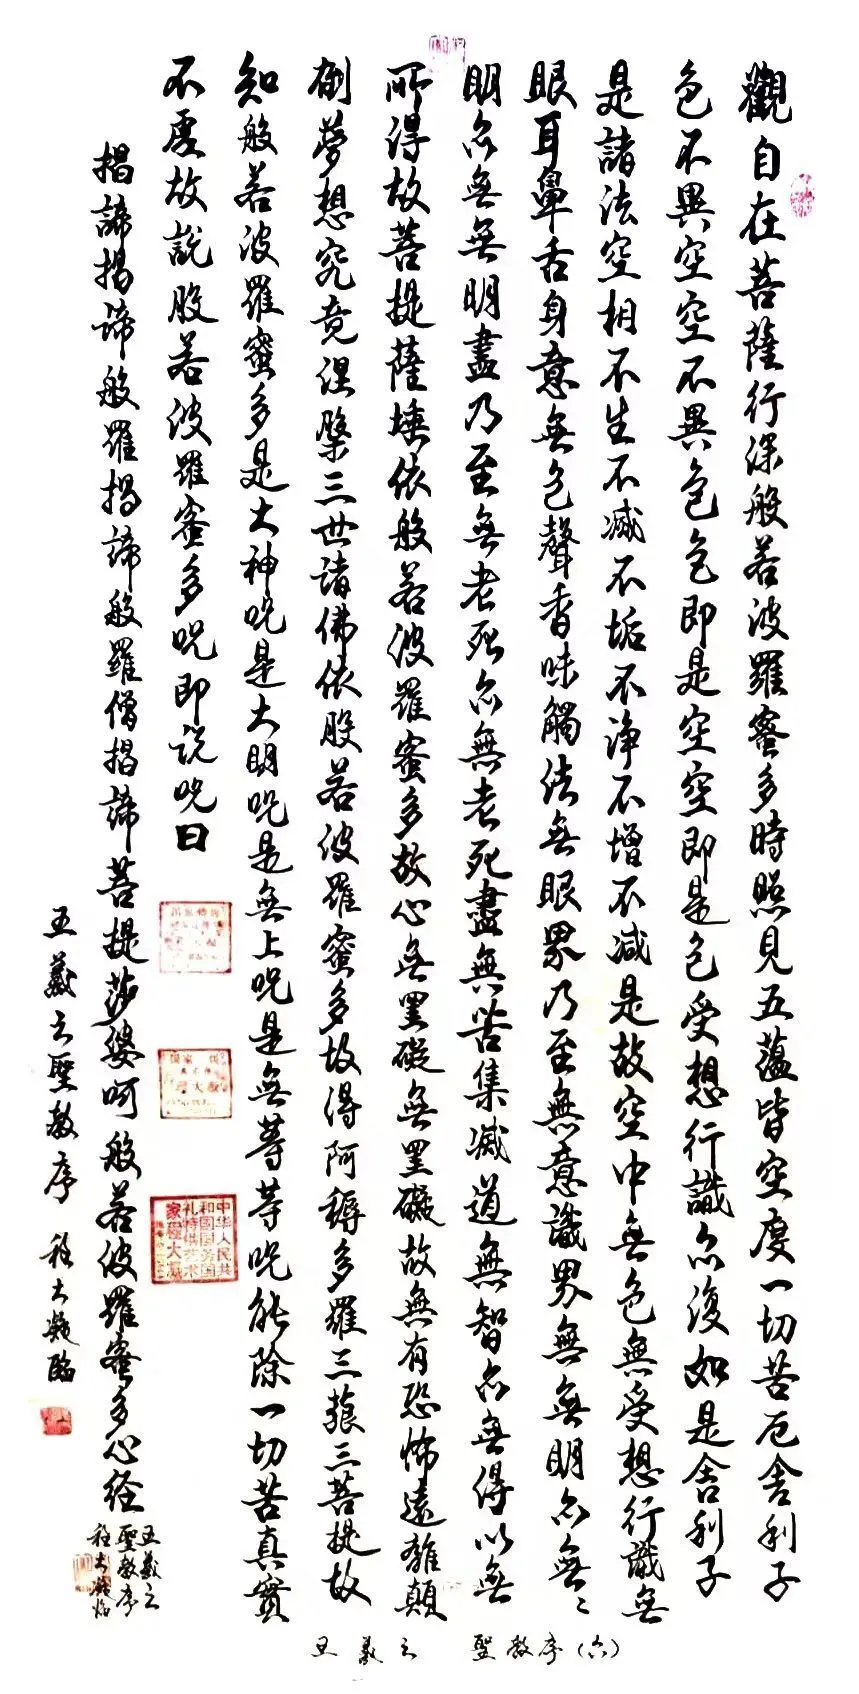 觀自在菩薩行深般若波羅蜜多時照見五蘊皆空度一切苦厄舍利子
色不異空空不異色色即是空空即是色受想行識亦復如是舍利子
是諸法空相不生不滅不垢不淨不增不減是故空中無色無受想行識無
眼耳鼻舌身意無色聲香味觸法無眼界乃至無意識界無無明亦無〻
明亦無無明盡乃至無老死亦無老死盡無苦集滅道無智亦無得以無
所得故菩提薩埵依般若波羅蜜多故心無罣礙無罣礙故無有恐怖遠離顛
倒夢想究竟涅槃三世諸佛依般若波羅蜜多故得阿耨多羅三藐三菩提故
知般若波羅蜜多是大神咒是大明咒是無上咒是無等等咒能除一切苦真實
不虛故說般若波羅蜜多咒即說咒曰
中华人民共
和國国务国
礼特供艺术
家程大凝
揭諦揭諦般羅揭諦般羅僧揭諦菩提莎婆呵般若波羅蜜多心经
王羲之
聖教序
程大凝临
王羲之聖教序 程大凝臨
王羲之 聖教序(六)